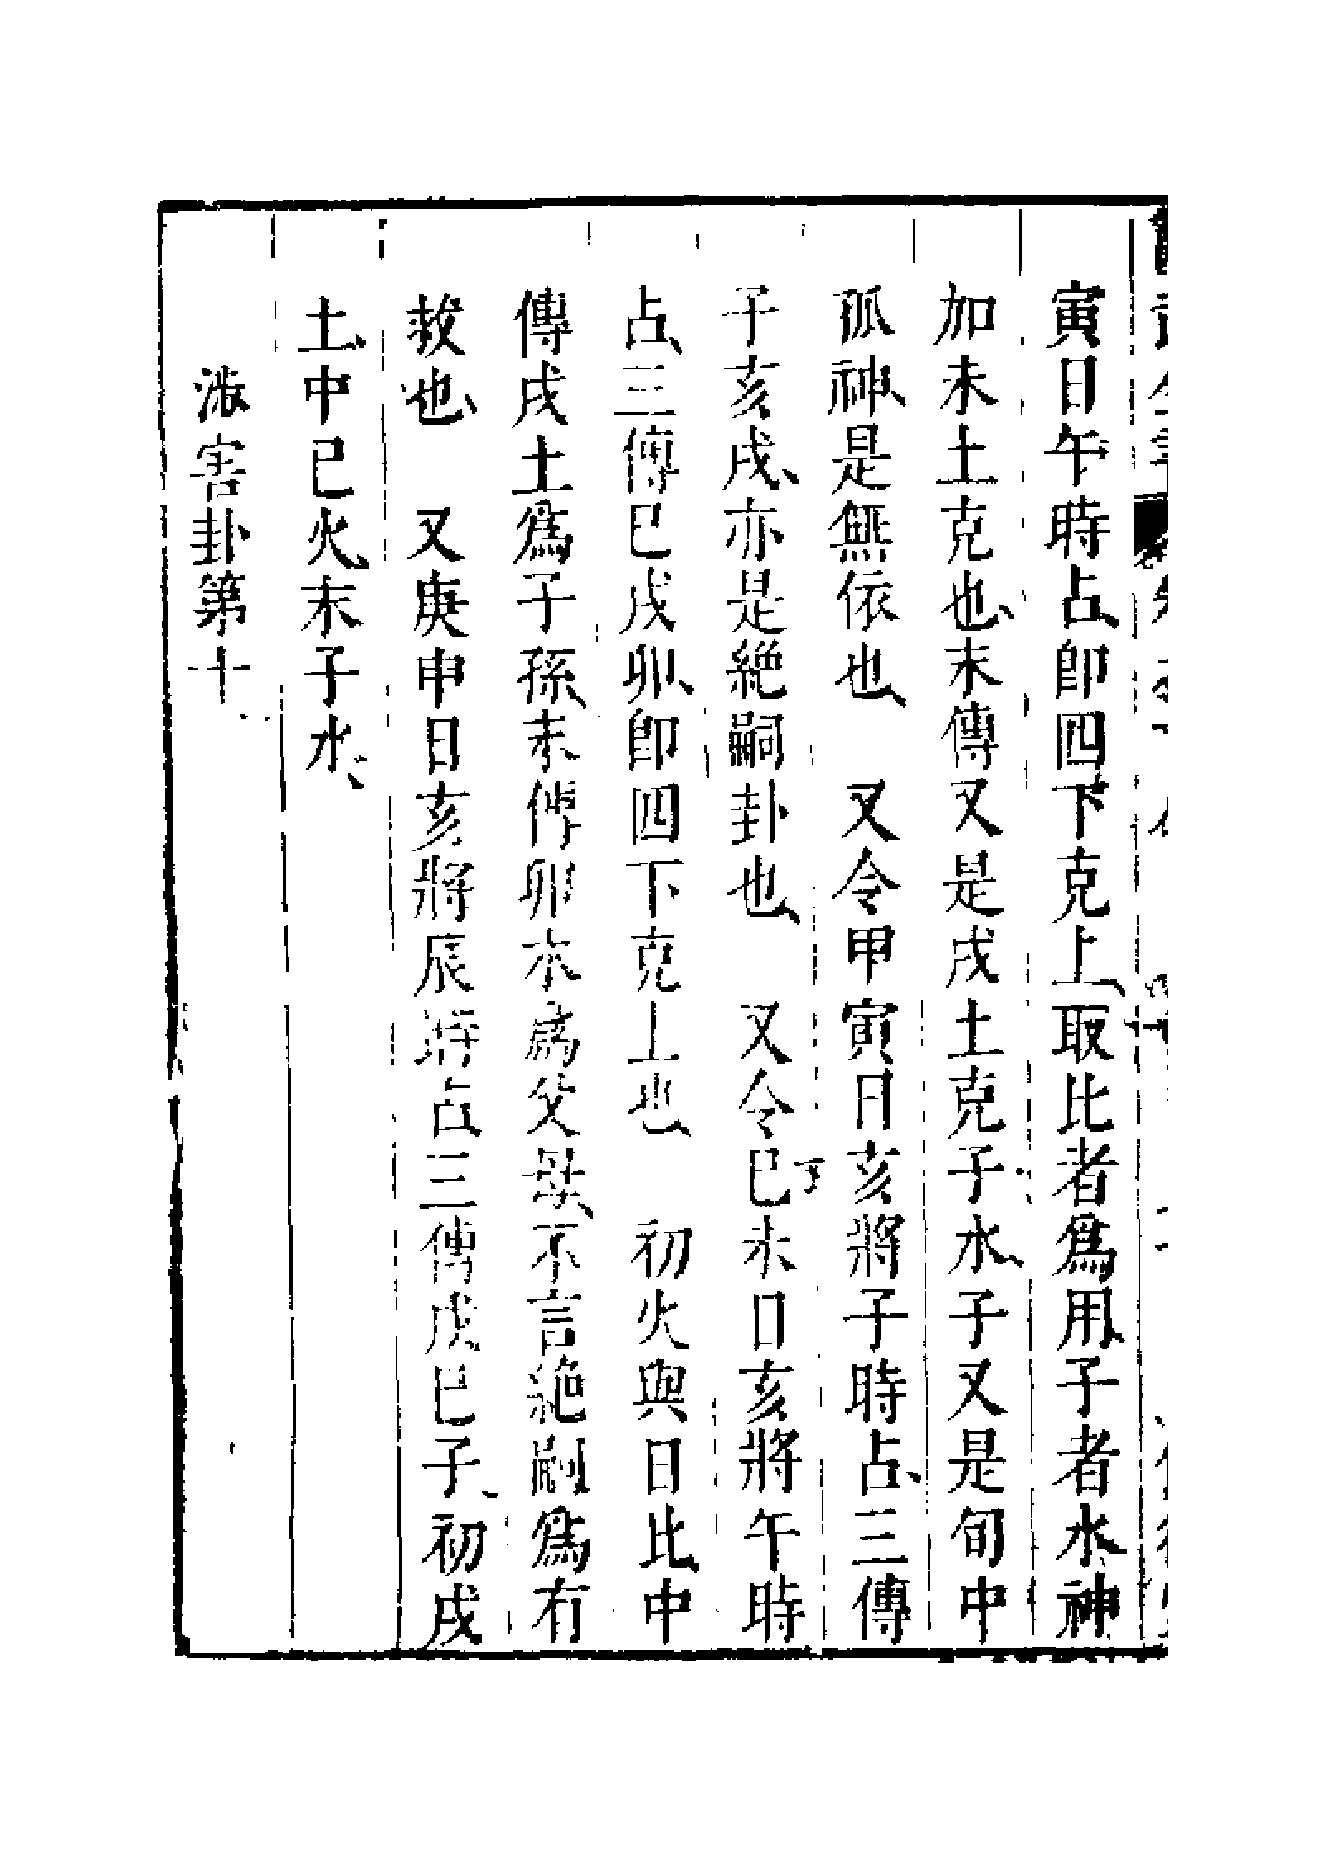 寅日午時占、卽四下克上、取比者爲用、子者水、神
加未土克也、末傳又是戌土克子水、子又是旬中
孤神、是無依也、　又令甲寅日亥將子時占、三傳
子亥戌、亦是絶嗣卦也、　又令巳未日亥將午時
占、三傳巳戌卯、卽四下克上也、　初火與日比、中
傳戌土爲子孫、末傳卯木爲父母、不言絶嗣爲有
救也、　又庚申日亥將辰時占、三傳戌巳子、初戌
土、中巳火、末子水、
涉害卦第十